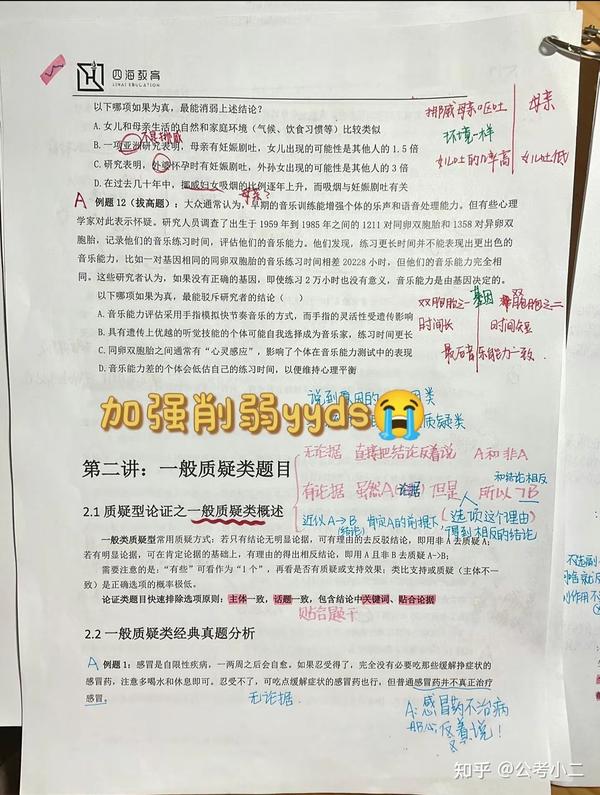 四海教育
SIHAI EDUCATION
以下哪项如果为真，最能消弱上述结论？
A. 女儿和母亲生活的自然和家庭环境（气候、饮食习惯等）比较类似
不是挪威
B. 一项亚洲研究表明，母亲有妊娠剧吐，女儿出现的可能性是其他人的 1.5 倍
C. 研究表明，外婆怀孕时有妊娠剧吐，外孙女出现的可能性是其他人的 3 倍
D. 在过去几十年中，挪威妇女吸烟的比例逐年上升，而吸烟与妊娠剧吐有关
母亲？
挪威母亲呕吐 母亲
环境一样
女儿吐的几率高 女儿吐低
A 例题 12（拔高题）：大众通常认为，早期的音乐训练能增强个体的乐声和语音处理能力。但有些心理
学家对此表示怀疑。研究人员调查了出生于 1959 年到 1985 年之间的 1211 对同卵双胞胎和 1358 对异卵双
胞胎，记录他们的音乐练习时间，评估他们的音乐能力。他们发现，练习更长时间并不能表现出更出色的
音乐能力，比如一对基因相同的同卵双胞胎的音乐练习时间相差 20228 小时，但他们的音乐能力完全相
同。这些研究者认为，如果没有正确的基因，即使练习 2 万小时也没有意义，音乐能力是由基因决定的。
以下哪项如果为真，最能驳斥研究者的结论（ ）
A. 音乐能力评估采用手指模拟快节奏音乐的方式，而手指的灵活性受遗传影响
B. 具有遗传上优越的听觉技能的个体可能自我选择成为音乐家，练习时间更长
C. 同卵双胞胎之间通常有“心灵感应”，影响了个体在音乐能力测试中的表现
D. 音乐能力差的个体会低估自己的练习时间，以便维持心理平衡
双胞胎之一 基因 双胞胎之二
时间长 时间短
最后音乐能力一致.
加强削弱yyds😭
第二讲：一般质疑类题目
无论据 直接把结论反着说 A和非A
有论据 虽然A(论据) 但是人 所以7B
和结论相反
2.1 质疑型论证之一般质疑类概述
近似A→B 肯定A的前提下 (选项这个理由)
(结论) 得到相反的结论
一般类质疑型常用质疑方式：若只有结论无明显论据，可有理由的去反驳结论，即用非 A 去质疑 A；
若有明显论据，可在肯定论据的基础上，有理由的得出相反结论，即用 A 且非 B 去质疑 A->B；
需要注意的是：“有些”可看作为“1 个”，再看是否有质疑或支持效果；类比支持或质疑（主体不一
致）是正确选项的概率很低。
论证类题目快速排除选项原则：主体一致，话题一致，包含结论中关键词、贴合论据
贴合题干
2.2 一般质疑类经典真题分析
A 例题 1：感冒是自限性疾病，一两周之后会自愈。如果忍受得了，完全没有必要吃那些缓解掉症状的
感冒药，注意多喝水和休息即可。忍受不了，可吃点缓解症状的感冒药也行，但普通感冒药并不真正治疗
感冒。
无论据.
A: 感冒药不治病
反着说！
知乎 @公考小二